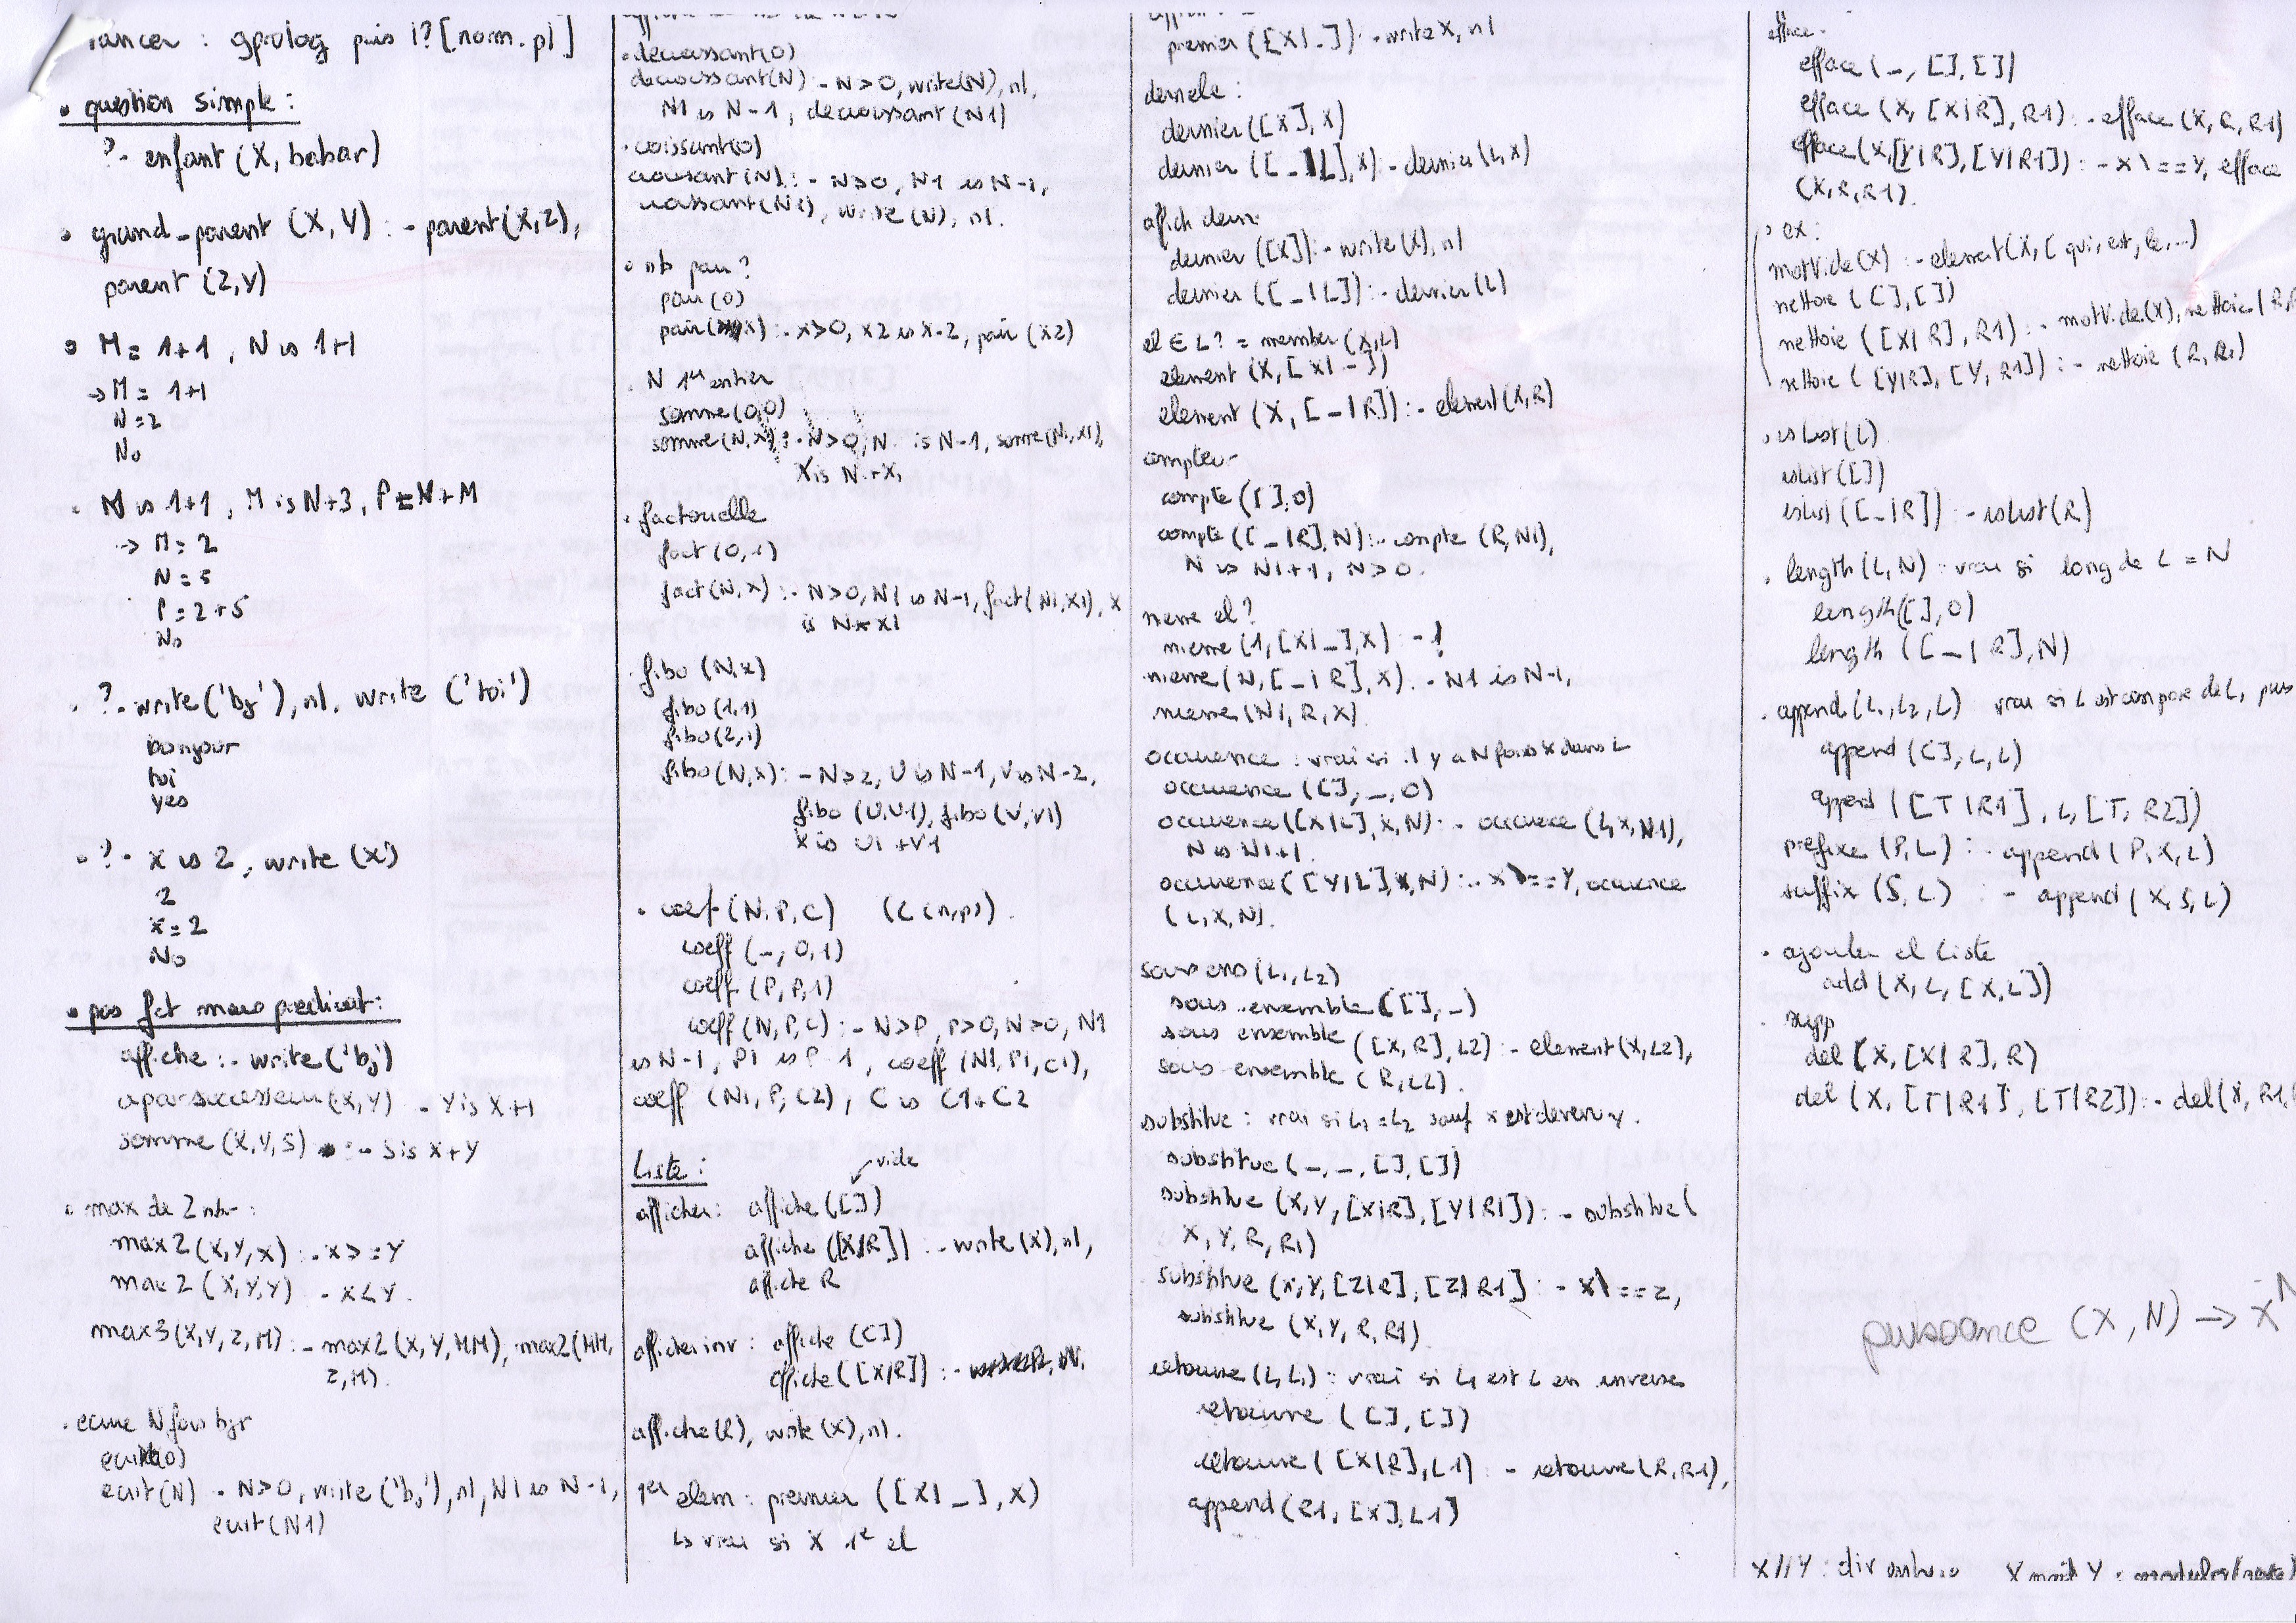 lancer : gprolog puis i?[nom.pl]
• question simple :
?- enfant (X, babar)
• grand_parent (X, Y) :- parent(X,Z),
parent (Z,Y)
• M = 1+1 , N is 1+1
→ M = 1+1
N = 2
No
• N is 1+1 , M is N+3, P = N+M
→ M = 2
N = 5
P = 2+5
No
• ?- write('bjr'), nl, write ('toi')
bonjour
toi
yes
• ?- X is 2, write (X)
2
X = 2
No
• pas fct mais prédicat :
affiche :- write('bj')
apoursuccesseur(X,Y) - Y is X+1
somme (X,Y,S) :- S is X+Y
• max de 2 nbr :
max2 (X,Y,X) :- X>=Y
max2 (X,Y,Y) - X<Y.
max3 (X,Y,Z,M) :- max2 (X,Y,MM), max2(MM,
Z,M).
• ecrire N fois bjr
ecrit(0)
ecrit(N) - N>0, write('bj'), nl, N1 is N-1,
ecrit(N1)
• decroissant(0)
decroissant(N) - N>0, write(N), nl,
N1 is N-1, decroissant (N1)
• croissant(0)
croissant(N) :- N>0, N1 is N-1,
croissant(N1), write (N), nl.
• nb pair ?
pair (0)
pair(X) :- X>0, X2 is X-2, pair (X2)
• N 1er entier
somme (0,0)
somme(N,X) :- N>0, N is N-1, somme(N1,X1),
X is N+X1
• factorielle
fact (0,1)
fact(N,X) :- N>0, N1 is N-1, fact(N1,X1), X
is N*X1
• fibo (N,X)
fibo (1,1)
fibo(2,1)
fibo(N,X) :- N>2, U is N-1, V is N-2,
fibo (U,U1), fibo (V,V1)
X is U1+V1
• coef (N,P,C) (C(n,p)).
coeff (_,0,1)
coeff (P,P,1)
coeff (N,P,C) :- N>P, P>0, N>0, N1
is N-1, P1 is P-1, coeff (N1,P1,C1),
coeff (N1,P,C2), C is C1+C2
Liste :
vide
afficher : affiche ([])
affiche ([X|R]) :- write (X), nl,
affiche R
afficher inv : affiche ([])
affiche ([X|R]) :-
affiche(R), write (X), nl.
1er elem : premier ([X|_], X)
↳ vrai si X 1er el
premier ([X|_]) - write X, nl
derniele :
dernier ([X],X)
dernier ([_|L],X) - dernier (L,X)
affich deux
dernier ([X]) - write (X), nl
dernier ([_|L]) :- dernier (L)
el ∈ L ? = member (X,L)
element (X,[X|_])
element (X, [_|R]) :- element (X,R)
compteur
compte ([],0)
compte ([_|R],N) :- compte (R,N1),
N is N1+1, N>0.
nieme el ?
nieme (1,[X|_],X) :- !
nieme (N,[_|R],X) - N1 is N-1,
nieme (N1,R,X).
occurence : vrai si il y a N fois X dans L
occurence ([],_,0)
occurence ([X|L],X,N) :- occurence (L,X,N1),
N is N1+1.
occurence ([Y|L],X,N) :- X\==Y, occurence
(L,X,N).
sous ens (L1,L2)
sous ensemble ([],_)
sous ensemble ([X,R],L2) :- element (X,L2),
sous ensemble (R,L2).
substitue : vrai si L1 = L2 sauf x est devenu y.
substitue (_,_,[],[])
substitue (X,Y,[X|R],[Y|R1]) :- substitue (
X,Y,R,R1)
substitue (X,Y,[Z|R],[Z|R1] :- X\==Z,
substitue (X,Y,R,R1).
retourne (L,L1) : vrai si L1 est L en inverse
retourne ([],[])
retourne ([X|R],L1) :- retourne (R,R1),
append (R1,[X],L1)
efface.
efface (_,[],[])
efface (X,[X|R],R1) :- efface (X,R,R1)
efface (X,[Y|R],[Y|R1]) :- X\==Y, efface
(X,R,R1).
• ex :
motVide (X) :- element (X,[qui, est, le,...)
nettoie ([],[])
nettoie ([X|R],R1) :- motVide(X), nettoie (R,
nettoie ([Y|R],[Y,R1]) :- nettoie (R,R1)
• isList (L)
isList ([])
isList ([_|R]) :- isList (R)
• length (L,N) : vrai si long de L = N
length ([],0)
length ([_|R],N)
• append (L1,L2,L) vrai si L est compose de L1 puis
append ([],L,L)
append ([T|R1],L,[T,R2])
prefixe (P,L) :- append (P,X,L)
suffix (S,L) :- append (X,S,L)
• ajouter el Liste
add (X,L,[X,L])
• supp
del (X,[X|R],R)
del (X,[T|R1],[T|R2]) :- del (X,R1,
puissance (X,N) → X^N
X//Y : div entiere X mod Y : modulo (reste)